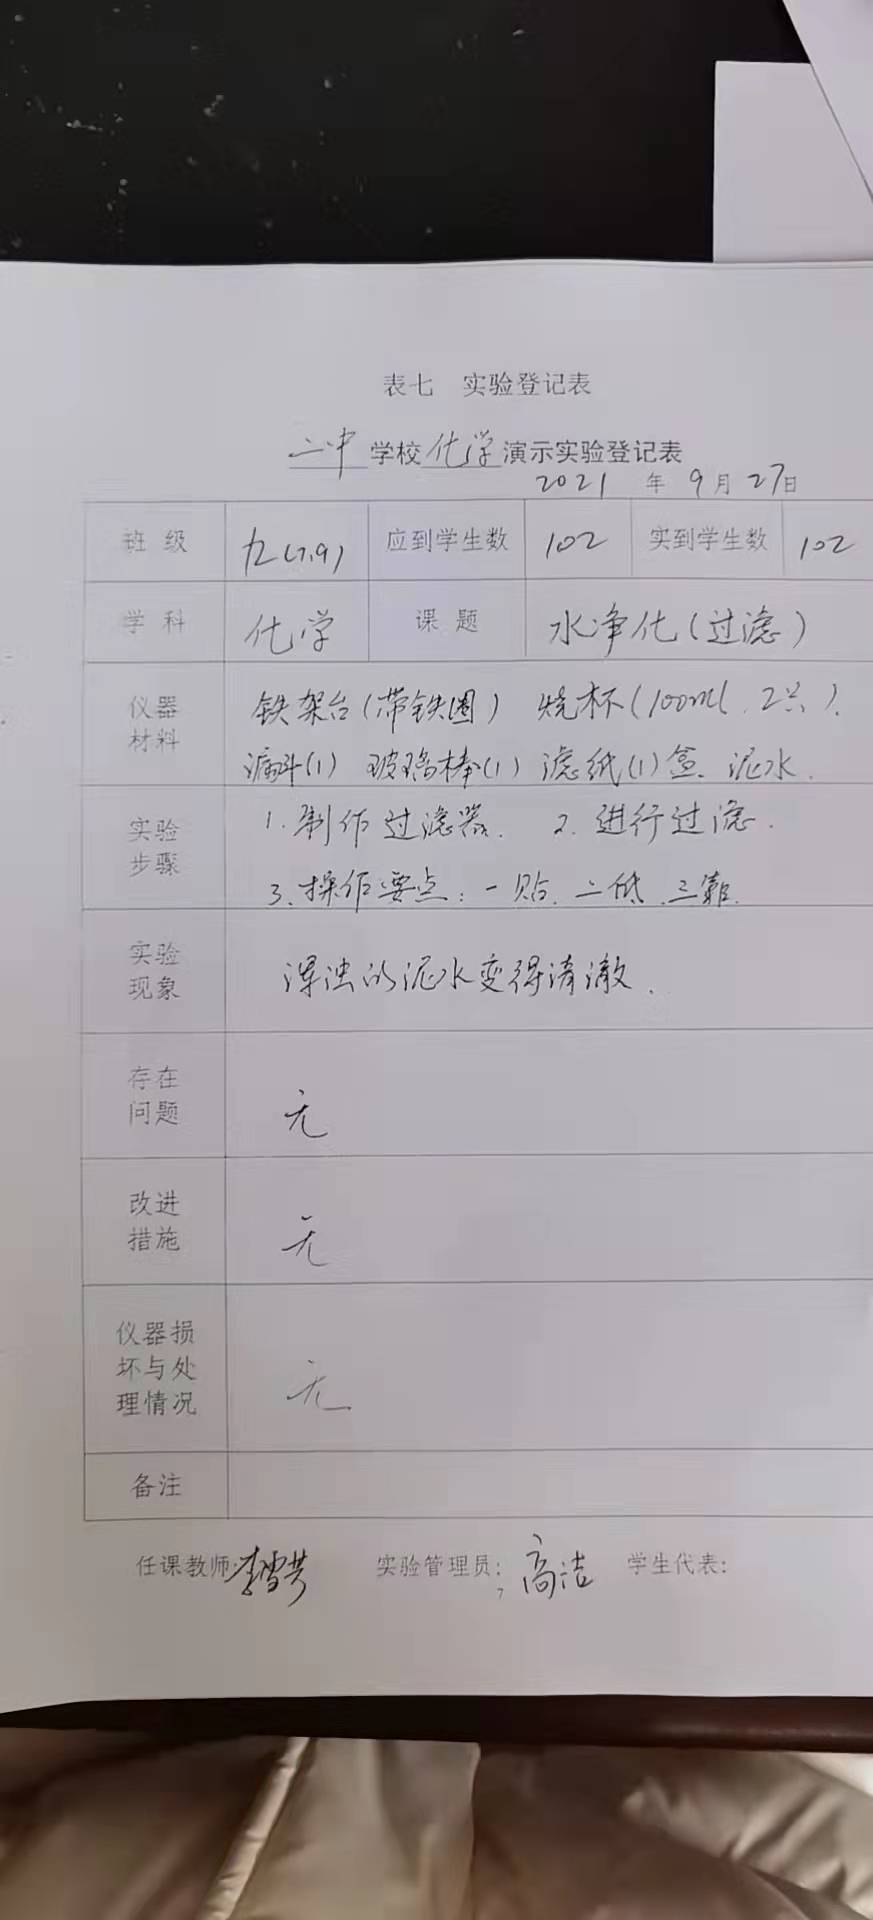 表七 实验登记表
二中学校化学演示实验登记表
2021 年 9 月 27日
班 级 九(7,9) 应到学生数 102 实到学生数 102
学 科 化学 课 题 水净化(过滤)
仪器 铁架台(带铁圈) 烧杯(100ml,2只).
材料 漏斗(1) 玻璃棒(1) 滤纸(1)盒、泥水.
实验 1.制作过滤器. 2.进行过滤.
步骤 3.操作要点:一贴、二低、三靠.
实验
现象 浑浊的泥水变得清澈.
存在
问题 无
改进
措施 无
仪器损
坏与处
理情况 无
备注
任课教师: 李雪芳 实验管理员: 高洁 学生代表:
7